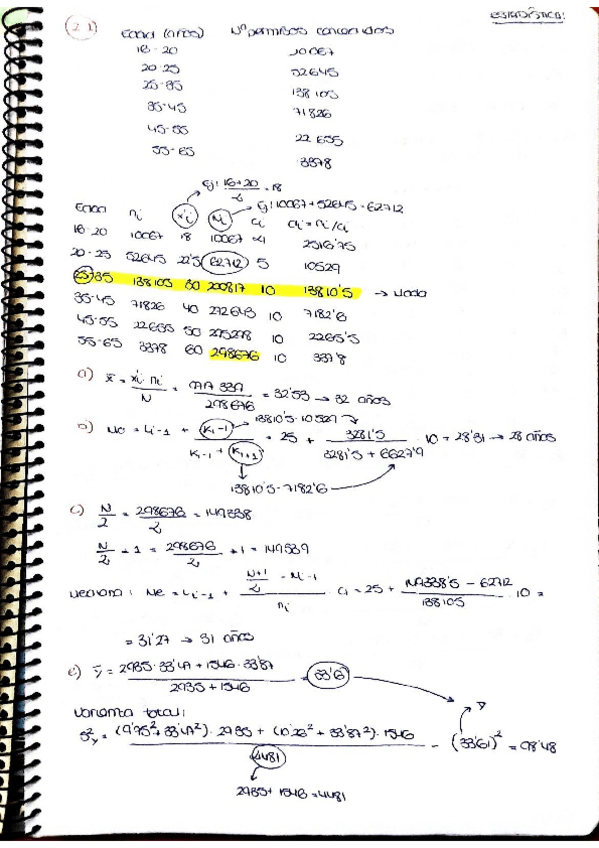 ESTADÍSTICA:
2.1) Edad (años) Nº permisos concedidos
16-20 10067
20-25 52645
25-35 138105
35-45 71826
45-55 22655
55-65 3378
Ej: 16+20/2 = 18
Ej: 10067 + 52645 = 62712
Edad ni xi Ni ci di = ni/ci
16-20 10067 18 10067 4 2516'75
20-25 52645 22'5 62712 5 10529
25-35 138105 30 200817 10 13810'5 → Moda
35-45 71826 40 272643 10 7182'6
45-55 22655 50 295298 10 2265'5
55-65 3378 60 298676 10 337'8
a) x̄ = xi·ni / N = / 298676 = 32'53 → 32 años
13810'5-10529
b) Mo = Li-1 + Ki-1 / Ki-1 + Ki+1 = 25 + 3281'5 / 3281'5 + 6627'9 · 10 = 28'31 → 28 años
13810'5-7182'6
c) N/2 = 298676/2 = 149338
N/2 + 1 = 298676/2 + 1 = 149339
Mediana: Me = Li-1 + N+1/2 - Ni-1 / ni · ci = 25 + 149338'5 - 62712 / 138105 · 10 =
= 31'27 → 31 años
e) ȳ = 2935·33'47 + 1546·33'87 / 2935 + 1546 = 33'61
Varianza total: ȳ
S²y = (9'75² + 33'47²)·2935 + (10'23² + 33'87²)·1546 / 4481 - (33'61)² = 98'48
2935 + 1546 = 4481